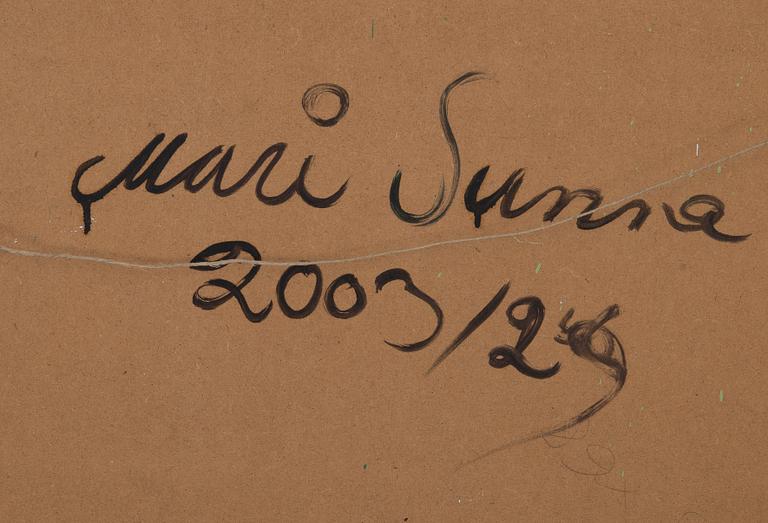 Mari Sunna
2003